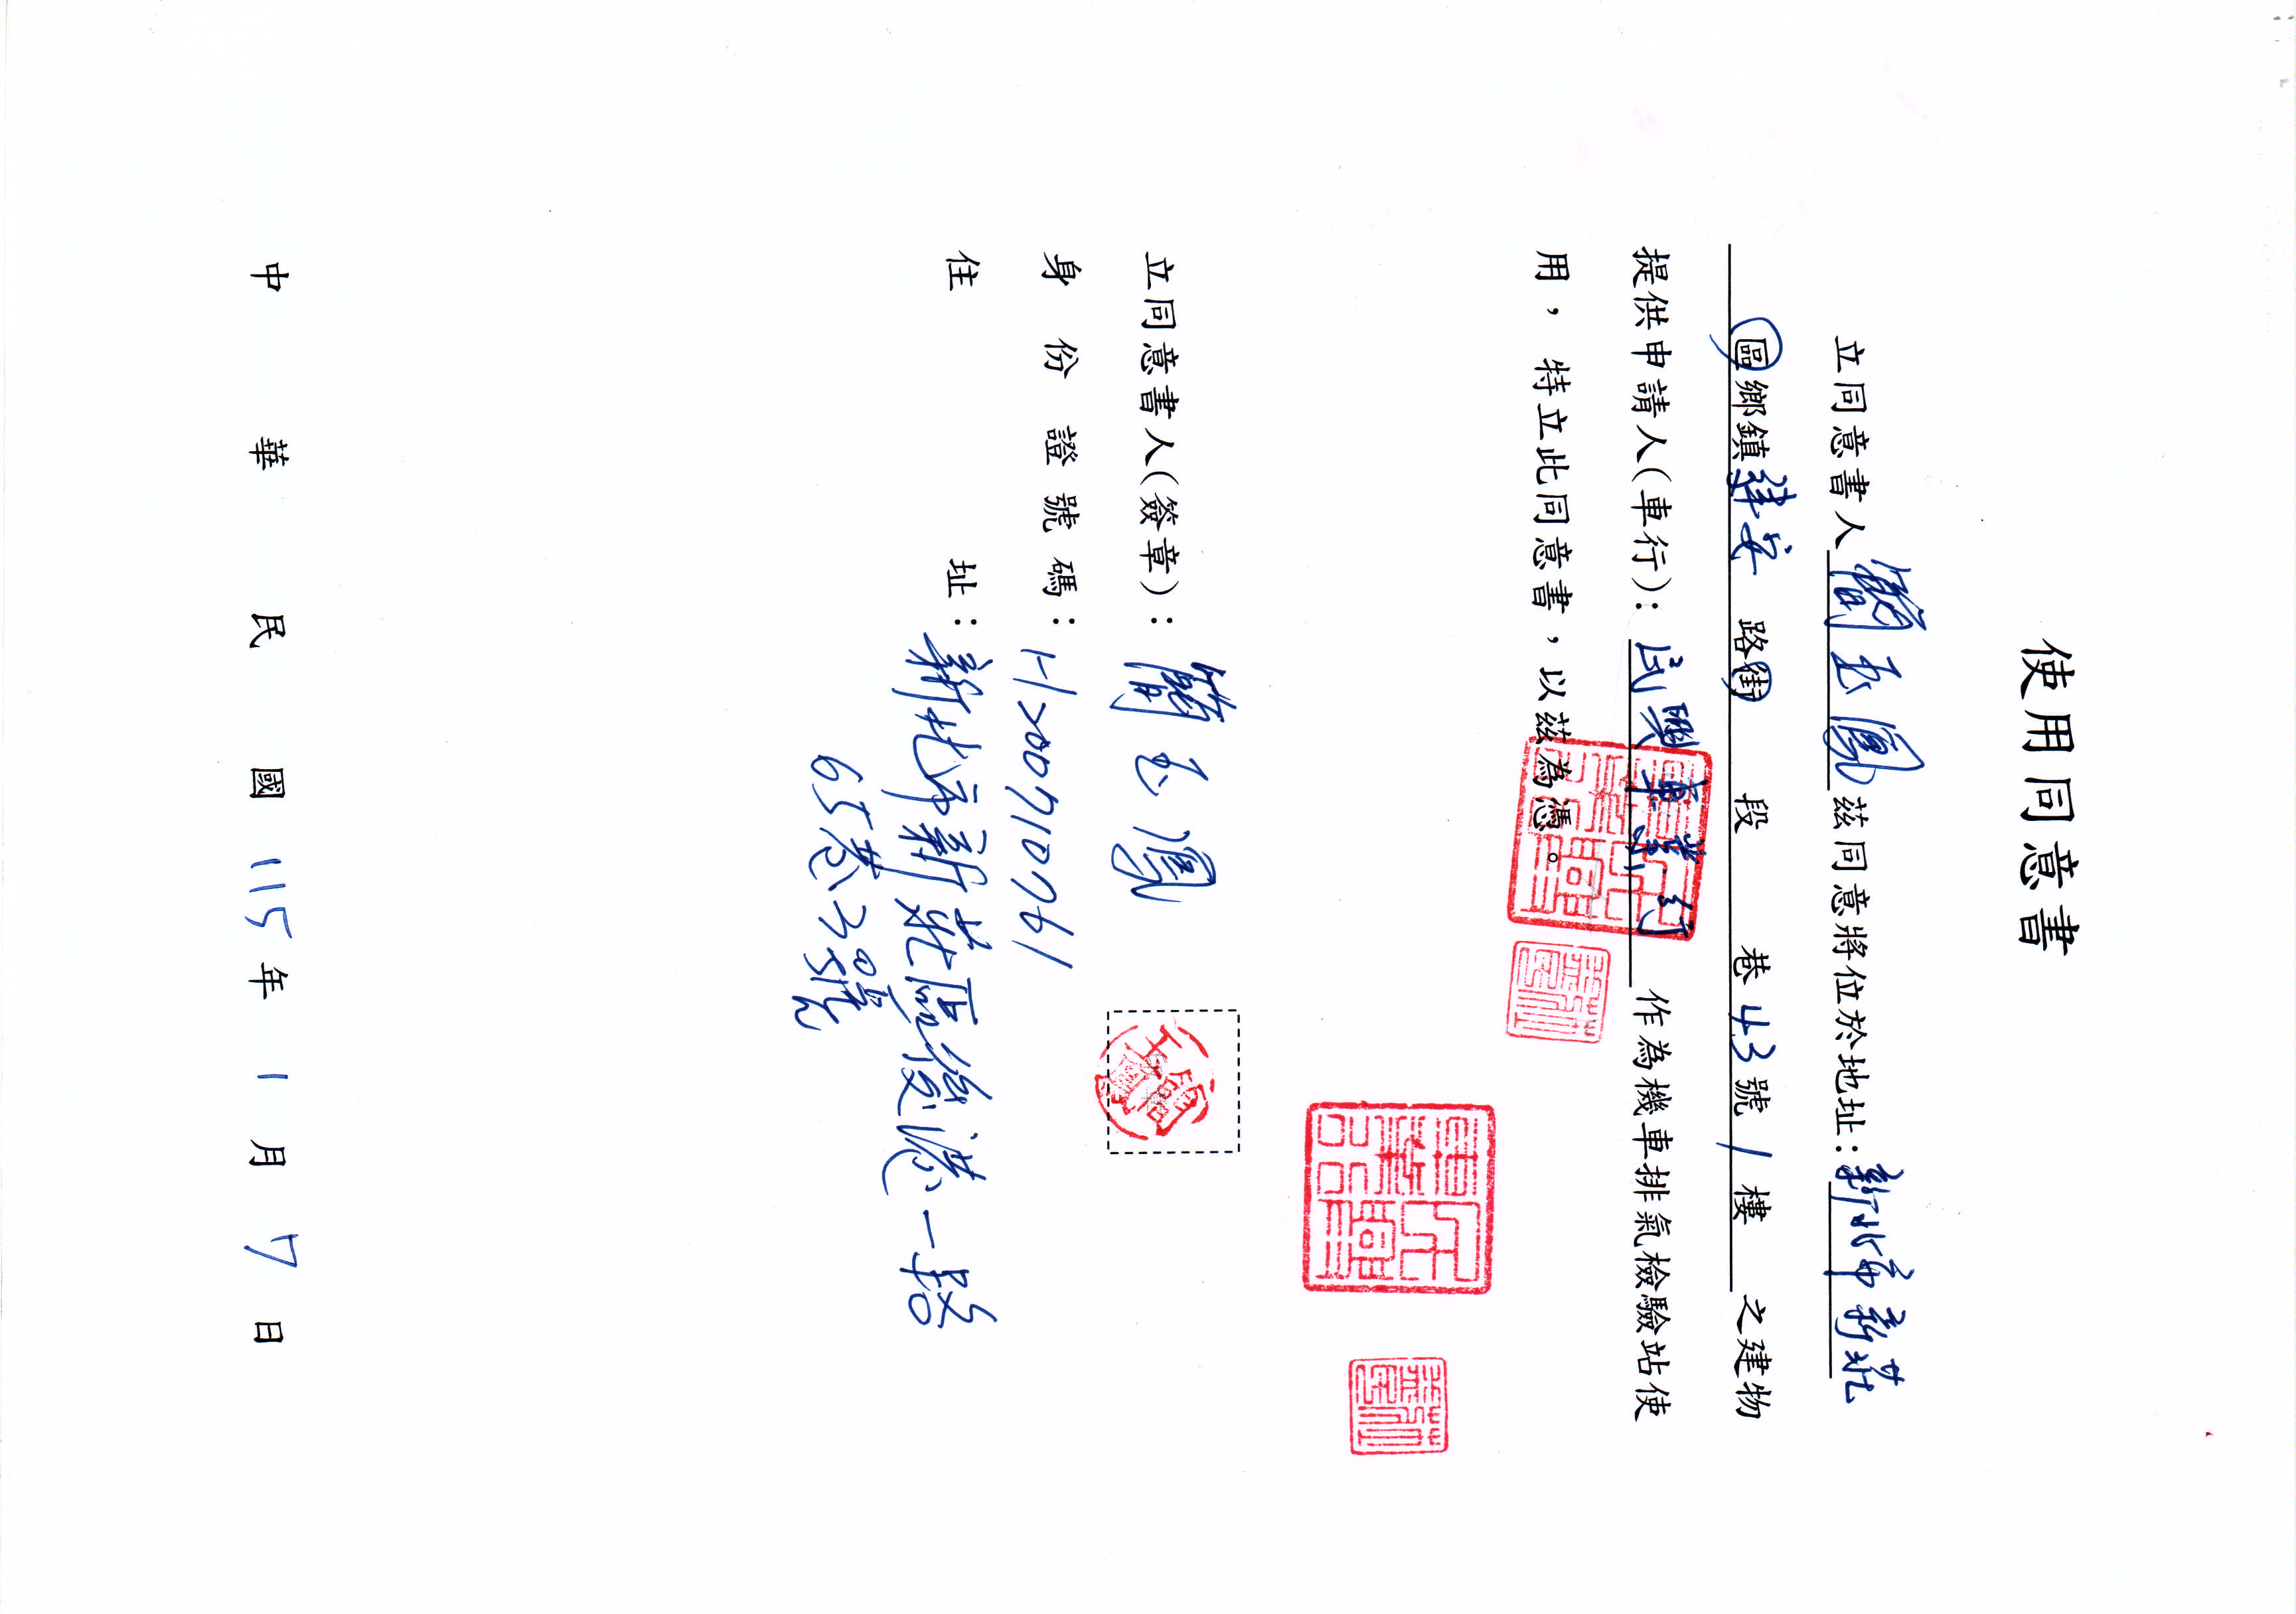 使用同意書
立同意書人簡玉鳳茲同意將位於地址：新北市新莊
區鄉鎮 路街 段 巷43號1樓 之建物
提供申請人(車行)：武興車業行 作為機車排氣檢驗站使
用，特立此同意書，以茲為憑。
立同意書人(簽章)：簡玉鳳
身份證號碼：H200710761
住址：新北市新莊區後港一路
65巷 號
中華民國115年1月7日